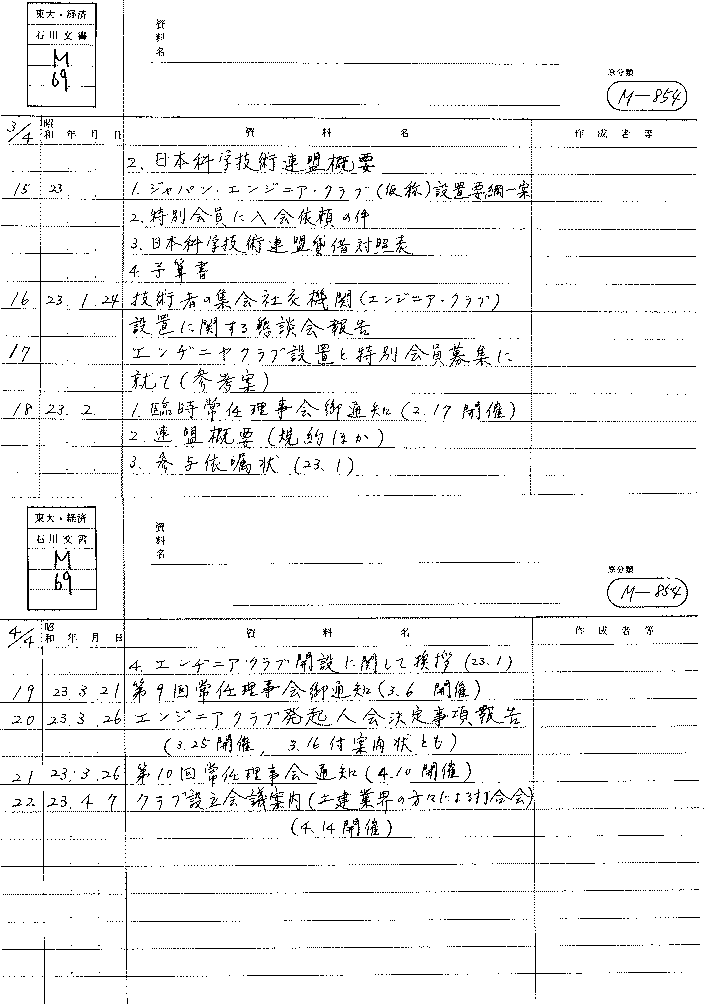 東大・経済
石川文書
M
69
資料名
原分類
M-854
3/4
昭和 年 月 日
資 料 名
作 成 者 等
2. 日本科学技術連盟概要
15 23. 1. ジャパン・エンジニア・クラブ(仮称)設置要綱一案
2. 特別会員に入会依頼の件
3. 日本科学技術連盟貸借対照表
4. 予算書
16 23. 1. 24 技術者の集会社交機関(エンジニア・クラブ)
設置に関する懇談会報告
17 エンヂニヤクラブ設置と特別会員募集に
就て(参考案)
18 23. 2. 1. 臨時常任理事会御通知(2.17 開催)
2. 連盟概要(規約ほか)
3. 参与依嘱状 (23.1)
東大・経済
石川文書
M
69
資料名
原分類
M-854
4/4
昭和 年 月 日
資 料 名
作 成 者 等
4. エンヂニアクラブ開設に関して挨拶 (23.1)
19 23 3. 21 第9回常任理事会御通知(3.6 開催)
20 23 3. 26 エンジニアクラブ発起人会決定事項報告
(3.25開催, 3.16付案内状とも)
21 23. 3. 26 第10回常任理事会通知(4.10 開催)
22 23. 4 7 クラブ設立会議案内(土建業界の方々による打合会)
(4.14開催)